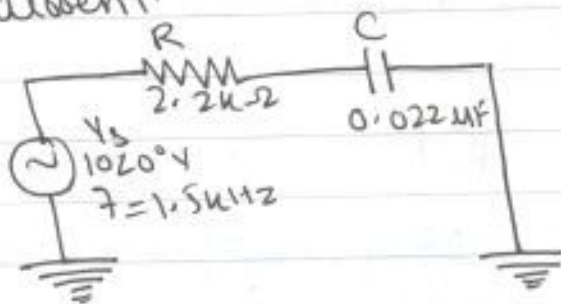 R
C
2.2kΩ
0.022 μF
Vs
10∠0° V
f=1.5kHz